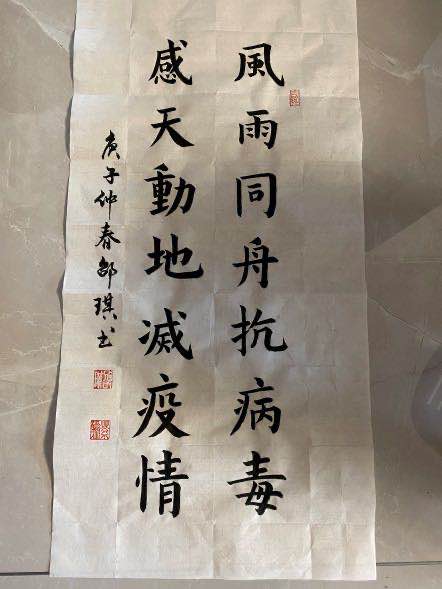 風雨同舟抗病毒
感天動地滅疫情
庚子仲春邵琪书